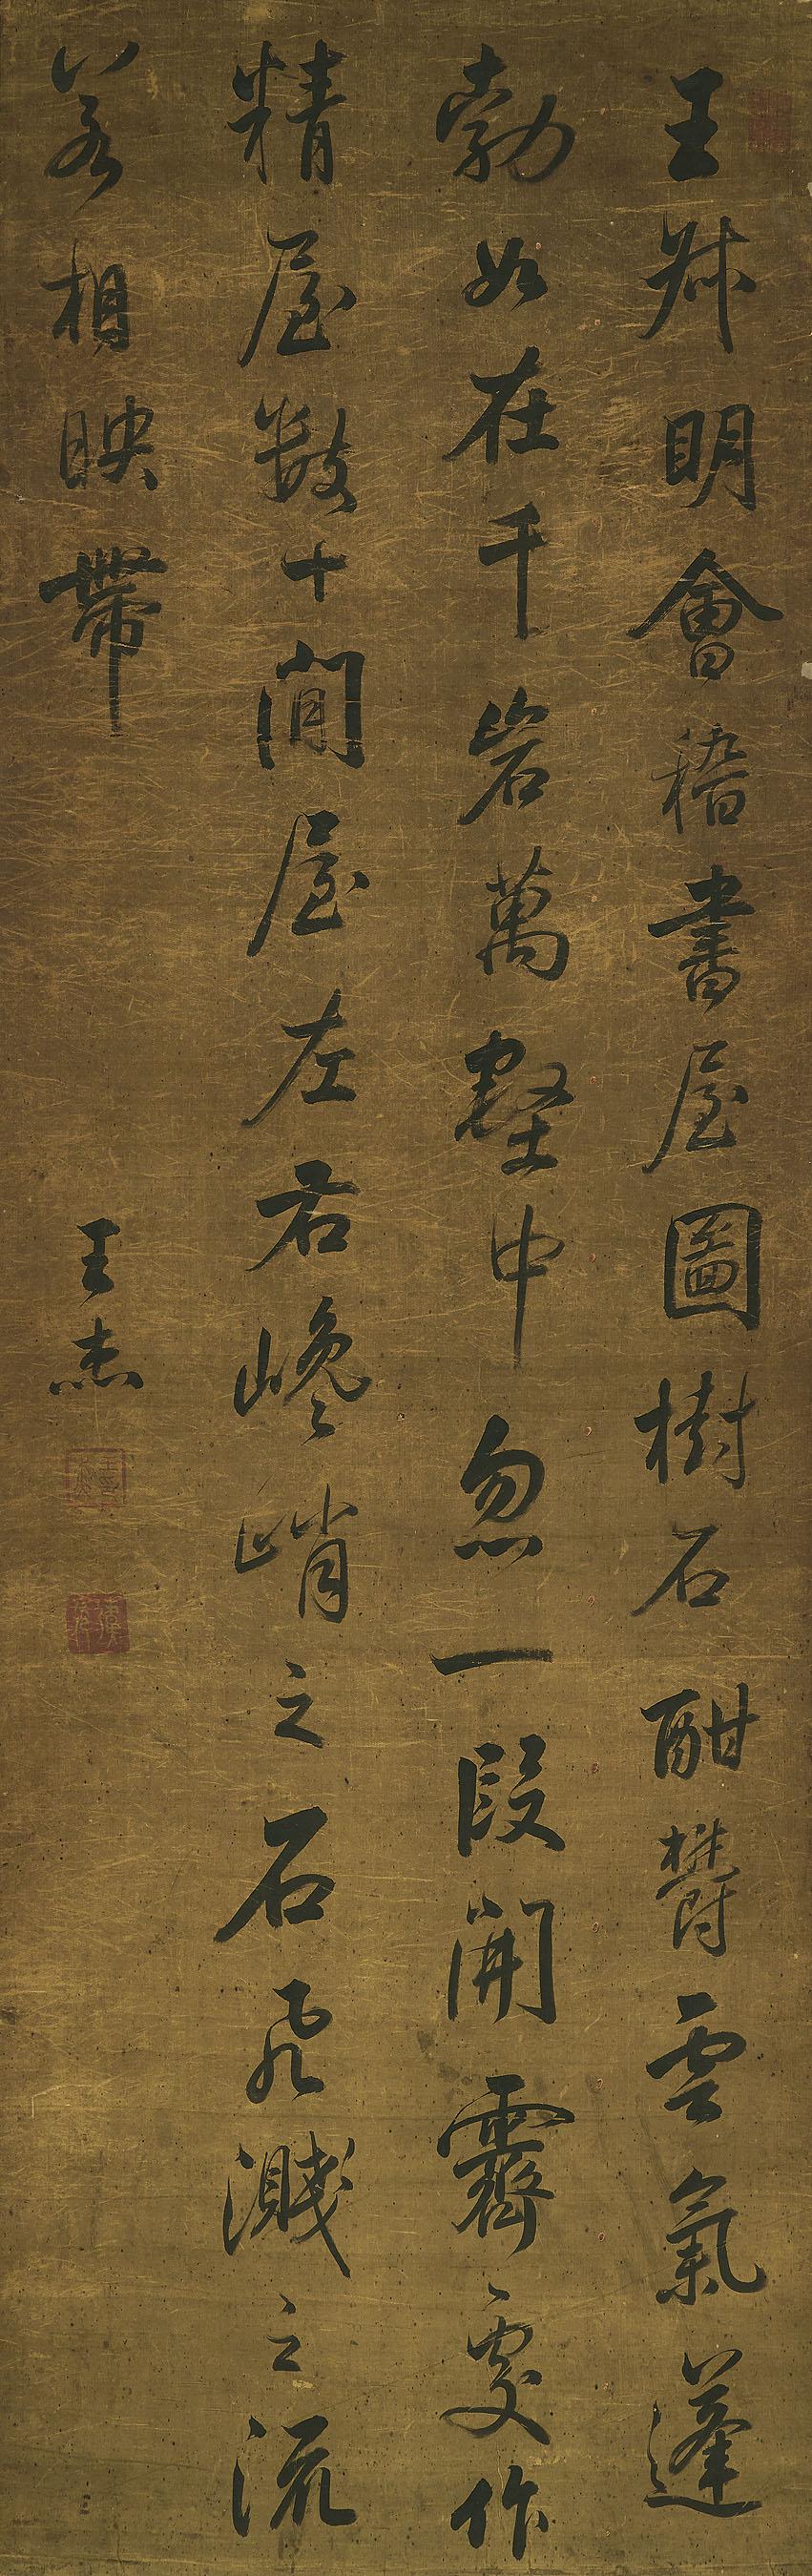 王叔明會稽書屋圖樹石酣鬱雲氣蓬
勃如在千岩萬壑中忽一段開霽處作
精屋數十間屋左右巉峭之石飛濺之流
若相映帶
王杰